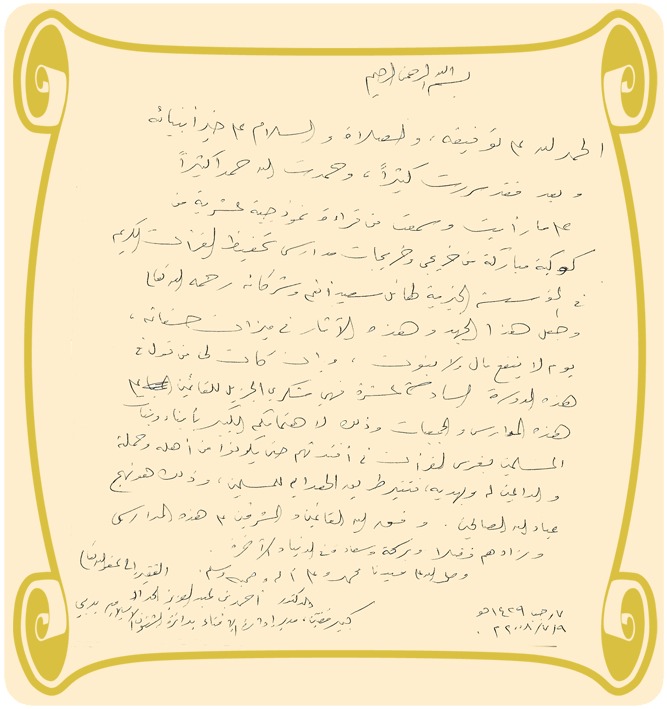 بسم الله الرحمن الرحيم
الحمد لله على توفيقه، والصلاة والسلام على خير أنبيائه
وبعد فقد سررت كثيراً، وحمدت الله حمداً كثيراً
على ما رأيت وسمعت من قراءة نموذجية عشرية من
كوكبة مباركة من خريجي وخريجات مدارس تحفيظ القرآن الكريم
في المؤسسة الخيرية لهائل سعيد أنعم وشركائه رحمه الله تعالى
وجعل هذا الجهد وهذه الآثار في ميزان حسناته،
يوم لا ينفع مال ولا بنون، وإن كانت لي من قول في
هذه الدورة السادسة عشرة فهي شكري الجزيل للقائمين على
هذه المدارس والجمعيات وذلك لاهتمامكم الكبير بأبناء وبنات
المسلمين بغرس القرآن في أفئدتهم حتى يكونوا من أهله وحملة
والداعين له ولهديه، فتنير طريق الهداية للمسلمين، وذلك هو نهج
عباد الله الصالحين. وفق الله القائمين والمشرفين على هذه المدارس
وزادهم فضلا وبركة وسعادة في الدنيا والآخرة.
وصلى الله على سيدنا محمد وعلى آله وصحبه وسلم.
الفقير إلى عفو الله تعالى
الدكتور أحمد بن عبد العزيز الحداد
كبير مفتين، مدير إدارة الإفتاء بدائرة الشؤون الإسلامية بدبي
٧ رجب ١٤٢٩ هـ
٢٠٠٨/٧/٩ م